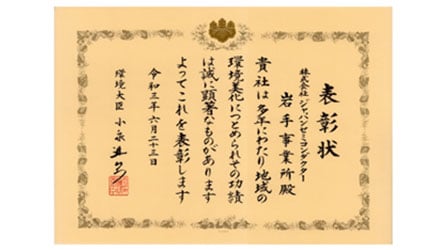 表彰状
株式会社ジャパンセミコンダクター
岩手事業所殿
貴社は多年にわたり地域の
環境美化につとめられその功績
は誠に顕著なものがあります
よってこれを表彰します
令和三年六月二十三日
環境大臣 小泉